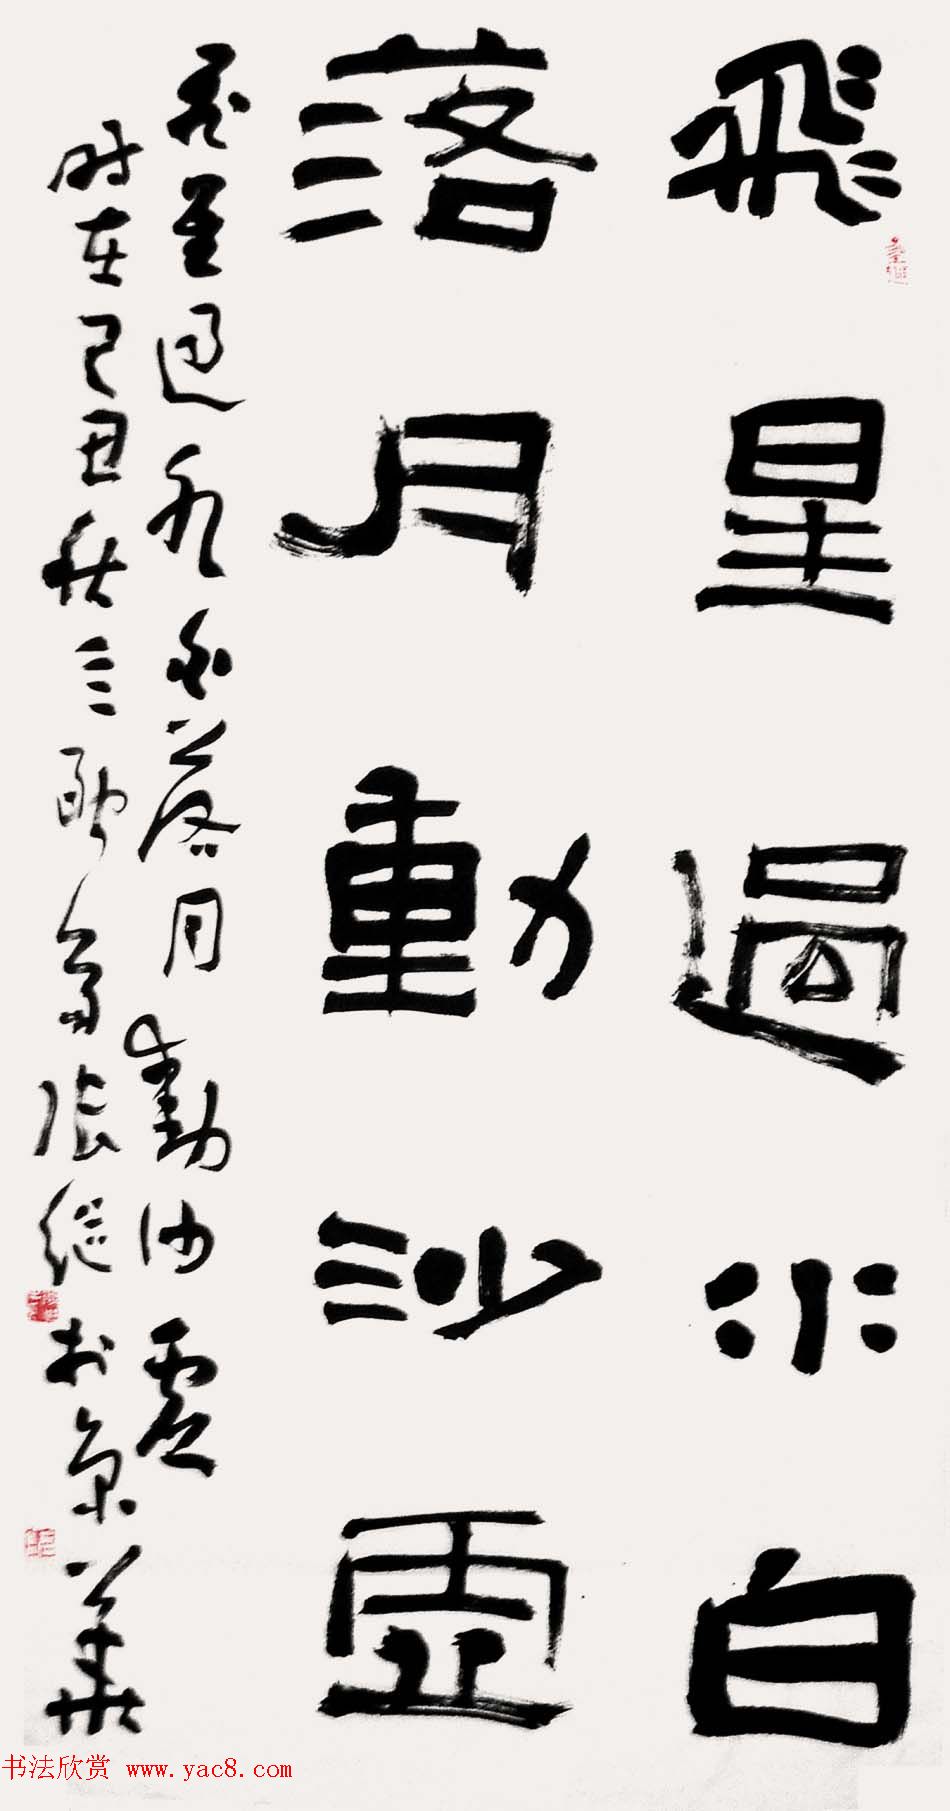 飛星過水白
落月動沙虛
飛星過水白落月動沙虛
時在己丑秋三
張繼於京華
书法欣赏 www.yac8.com